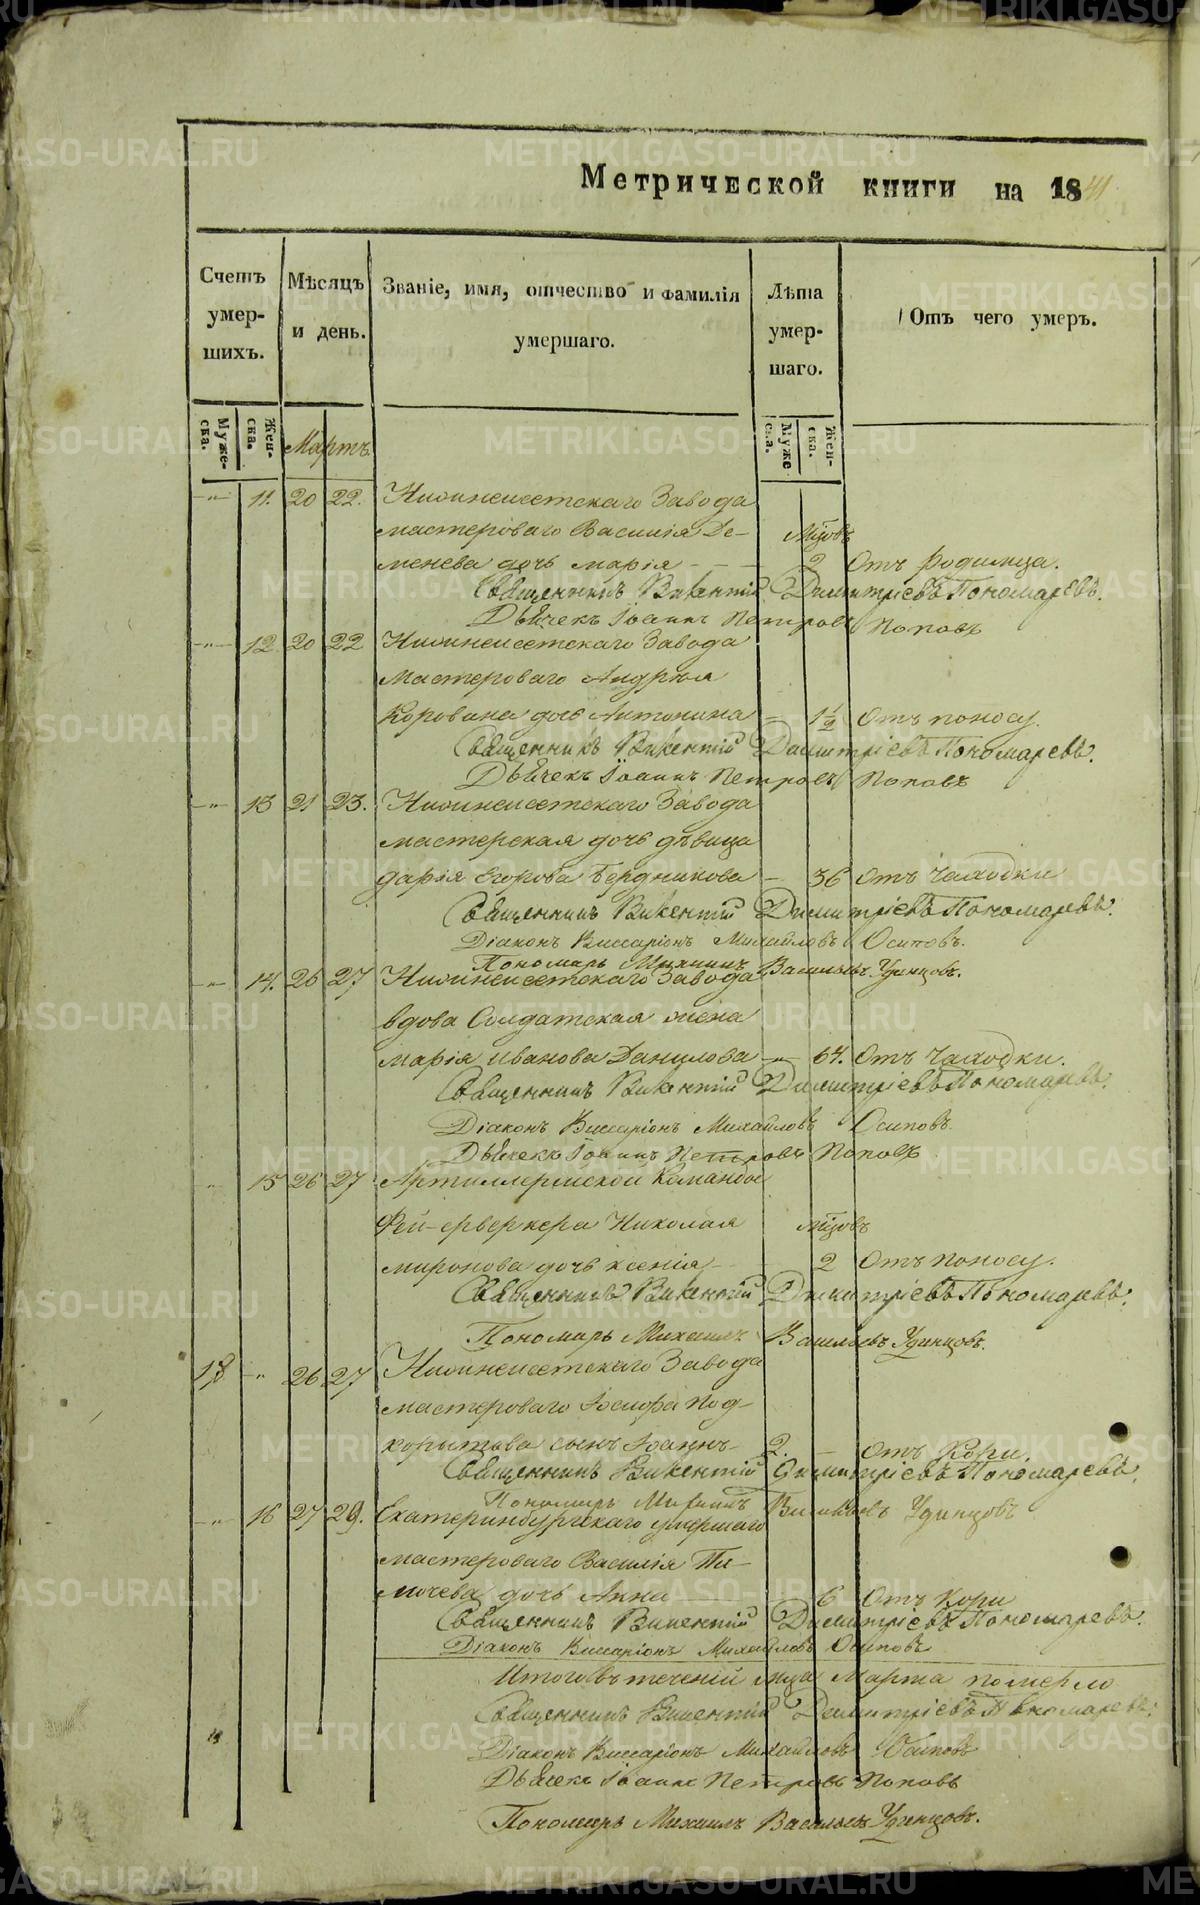 Метрической книги на 1841
Счетъ умер-шихъ.
Мѣсяцъ и день.
Званіе, имя, отчество и фамилія умершаго.
Лѣта умер-шаго.
Отъ чего умеръ.
Муже-ска.
Жен-ска.
Мартъ
Муже-ска.
Жен-ска.
11. 20 22. Нижнеисетскаго Завода
мастероваго Василія Де- Мцовъ
менева дочь марія 2 Отъ родимца.
Священникъ Викентій Димитріевъ Пономаревъ.
Дьячекъ Іоаннъ Петровъ Поповъ
12 20 22 Нижнеисетскаго Завода
Мастероваго Андрѣя
дочь Антонина 1 1/2 Отъ поносу.
Священникъ Викентій Димитріевъ Пономаревъ.
Дьячекъ Іоаннъ Петровъ Поповъ
13 21 23. Нижнеисетскаго Завода
мастерская дочь дѣвица
дарія Егорова Бердникова 36 Отъ Чаходки
Священникъ Викентій Димитріевъ Пономаревъ.
Діаконъ Виссаріонъ Михайловъ Осиповъ.
Пономарь Михаилъ Васильевъ Удинцовъ.
14. 26 27 Нижнеисетскаго Завода
вдова Солдатская жена
марія иванова Данилова 64. Отъ Чаходки.
Священникъ Викентій Димитріевъ Пономаревъ.
Діаконъ Виссаріонъ Михайловъ Осиповъ.
Дьячекъ Іоаннъ Петровъ Поповъ
15 26 27 Артиллерійской Команды
Фей-ерверкера Николая мцовъ
миронова дочь ксенія 2 Отъ поносу.
Священникъ Викентій Димитріевъ Пономаревъ.
Пономарь Михаилъ Васильевъ Удинцовъ.
18 26 27 Нижнеисетскаго Завода
мастероваго Іосифа Под-
корытова сынъ Іоаннъ 2. Отъ Кори.
Священникъ Викентій Димитріевъ Пономаревъ.
Пономарь Михаилъ Васильевъ Удинцовъ
16 27 29. Екатеринбургскаго умершаго
мастероваго Василія
дочь Анна 6 Отъ Кори
Священникъ Викентій Димитріевъ Пономаревъ.
Діаконъ Виссаріонъ Михайловъ Осиповъ
Итого въ теченій мца Марта померло
Священникъ Викентій Димитріевъ Пономаревъ.
Діаконъ Виссаріонъ Михайловъ Осиповъ
Дьячекъ Іоаннъ Петровъ Поповъ
Пономарь Михаилъ Васильевъ Удинцовъ.
METRIKI.GASO-URAL.RU